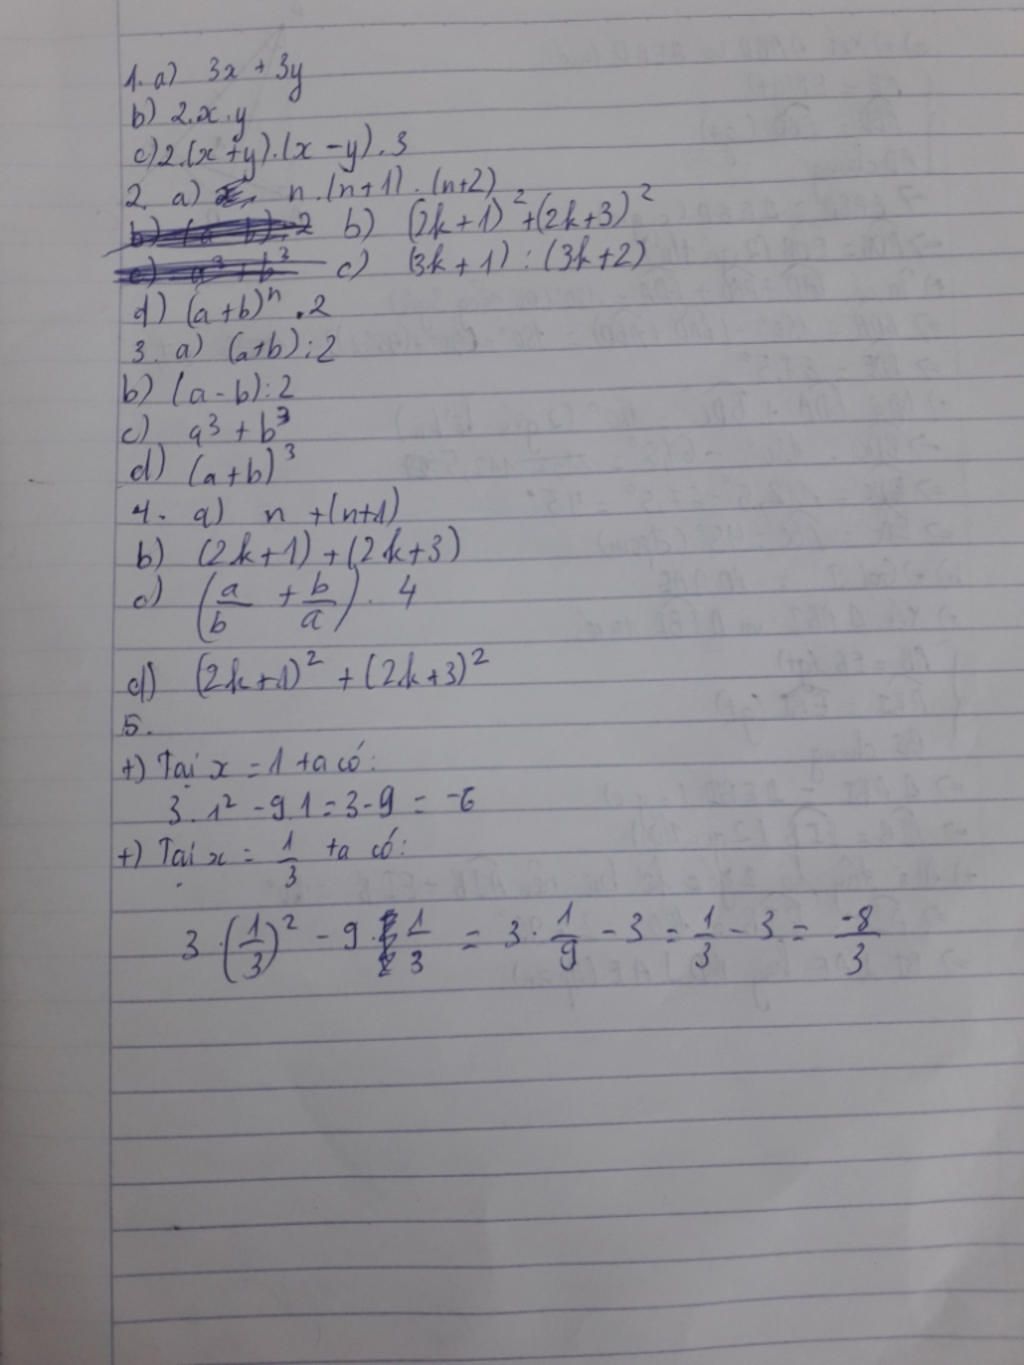 1. a) 3x + 3y
b) 2.x.y
c) 2.(x+y).(x-y).3
2. a) n.(n+1).(n+2)
b) (a-b):2 b) (2k+1)² + (2k+3)²
c) a³+b³ c) (3k+1):(3k+2)
d) (a+b)ⁿ.2
3. a) (a+b):2
b) (a-b):2
c) a³+b³
d) (a+b)³
4. a) n+(n+1)
b) (2k+1)+(2k+3)
c) (a/b + b/a).4
d) (2k+1)² + (2k+3)²
5.
+) Tại x = 1 ta có:
3.1² - 9.1 = 3-9 = -6
+) Tại x = 1/3 ta có:
3.(1/3)² - 9.1/3 = 3.1/9 - 3 = 1/3 - 3 = -8/3